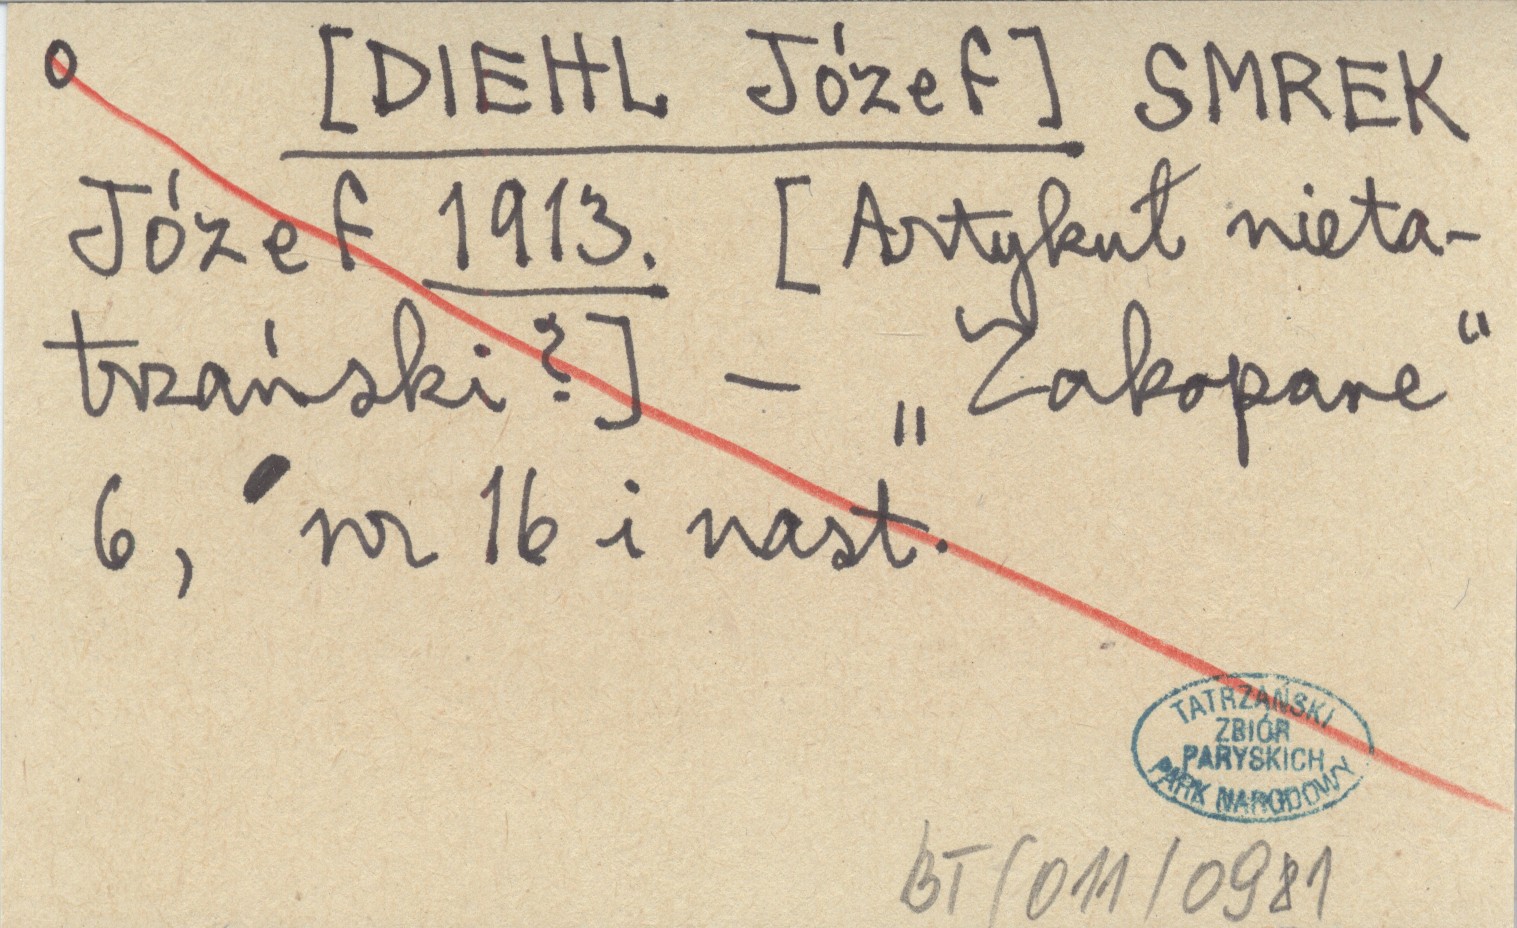 O [DIEHL Józef] SMREK
Józef 1913. [Artykuł nieta-
trzański?] – „Zakopane“
6, nr 16 i nast.
TATRZAŃSKI
ZBIÓR
PARYSKICH
PARK NARODOWY
BT/011/0981